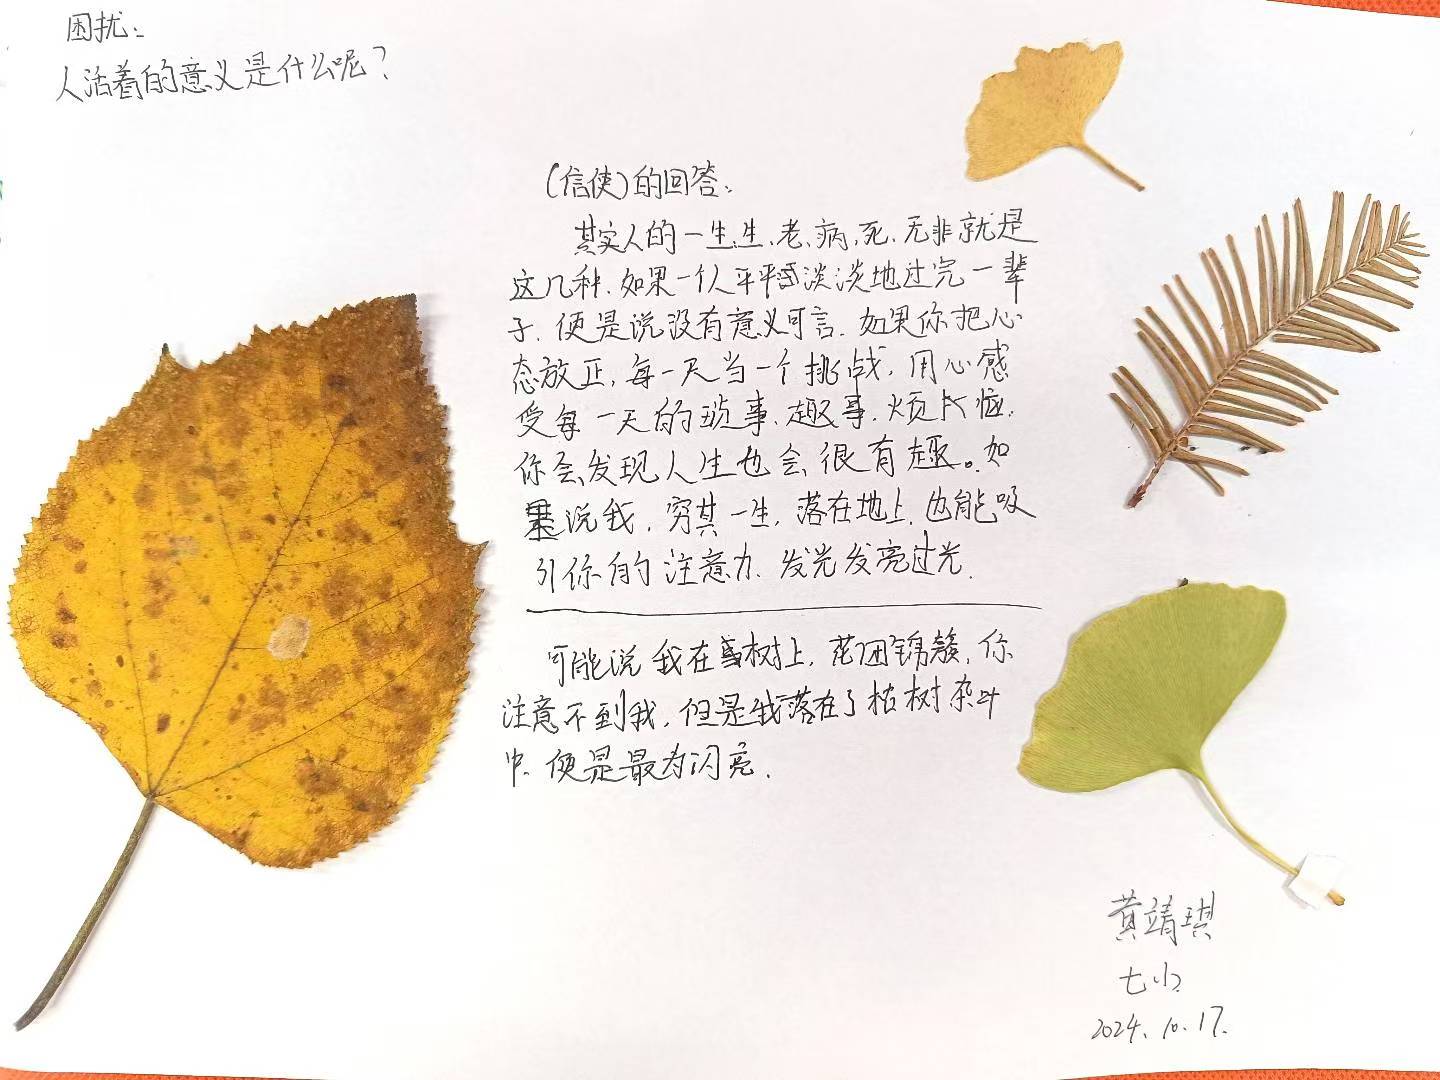 困扰:
人活着的意义是什么呢?
(信使)的回答:
其实人的一生,生、老、病、死,无非就是
这几种.如果一个人平平淡淡地过完一辈
子.便是说没有意义可言.如果你把心
态放正,每一天当一个挑战,用心感
受每一天的琐事、趣事、烦恼.
你会发现人生也会很有趣。如
果说我,穷其一生,落在地上,也能吸
引你的注意力、发光发亮过光.
可能说我在树上,花团锦簇,你
注意不到我,但是我落在了枯树杂叶
中,便是最为闪亮.
黄靖琪
七小
2024.10.17.